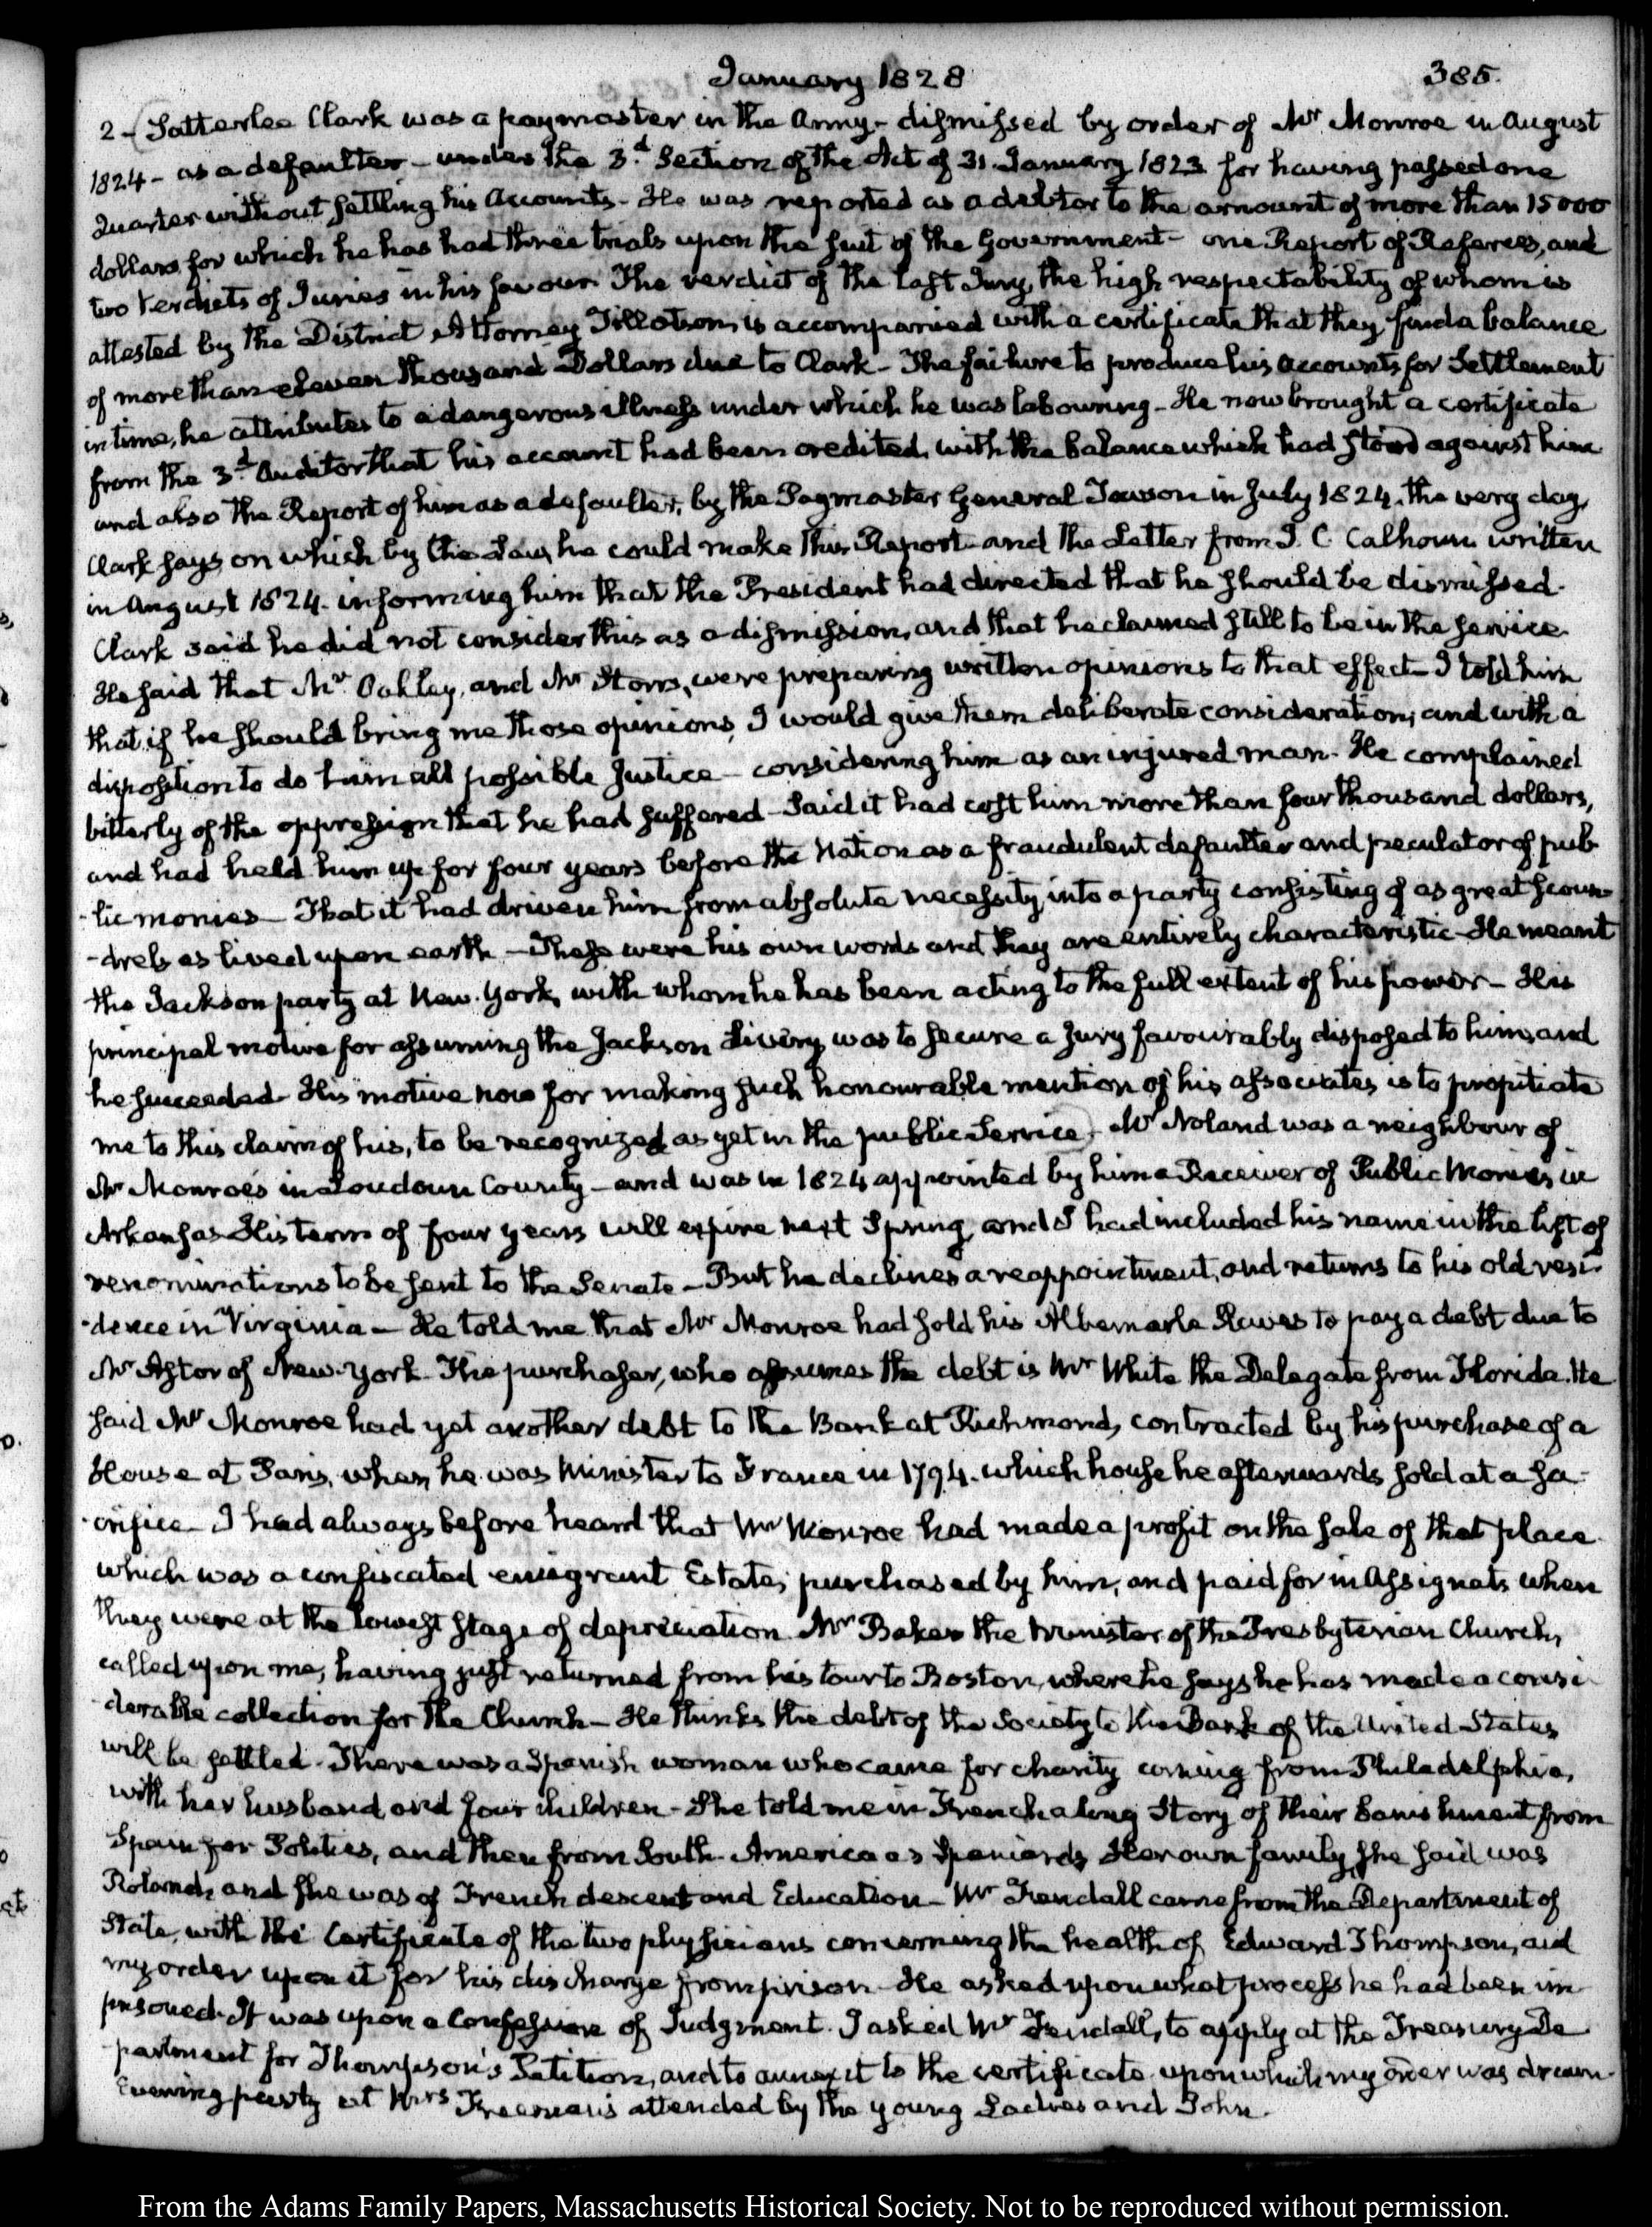 January 1828
385.
2 - (Satterlee Clark was a paymaster in the Army - dismissed by order of Mr Monroe in August
1824 - as a defaulter - under the 3d Section of the Act of 31. January 1823 for having passed one
Quarter without settling his Accounts - He was reported as a debtor to the amount of more than 15000
dollars for which he has had three trials upon the suit of the Government - one Report of Referees, and
two Verdicts of Juries in his favour. The verdict of the last Jury, the high respectability of whom is
attested by the District Attorney Tillotson, is accompanied with a certificate that they find a balance
of more than eleven thousand Dollars due to Clark - The failure to produce his accounts for Settlement
in time, he attributes to a dangerous illness under which he was labouring - He now brought a certificate
from the 3d Auditor that his account had been credited, with the balance which had stood against him
and also the Report of him as a defaulter, by the Paymaster General Towson in July 1824. the very day,
Clark says, on which by the Law, he could make this Report and the Letter from J. C. Calhoun written
in August 1824. informing him that the President had directed that he should be dismissed.
Clark said he did not consider this as a dismission, and that he claimed still to be in the service.
He said that Mr Oakley, and Mr Storrs, were preparing written opinions to that effect - I told him
that if he should bring me those opinions, I would give them deliberate consideration; and with a
disposition to do him all possible Justice - considering him as an injured man. He complained
bitterly of the oppression that he had suffered - Said it had cost him more than four thousand dollars,
and had held him up for four years before the Nation as a fraudulent defaulter and peculator of pub
-lic monies - That it had driven him from absolute necessity, into a party consisting of as great scoun-
-drels as lived upon earth - These were his own words and they are entirely characteristic - He meant
the Jackson party at New-York, with whom he has been acting to the full extent of his power - His
principal motive for assuming the Jackson Livery, was to secure a Jury favourably disposed to him, and
he succeeded - His motive now for making such honourable mention of his associates, is to propitiate
me to this claim of his, to be recognized as yet in the public Service) - Mr Noland was a neighbour of
Mr Monroe's in Loudoun County - and was in 1824 appointed by him a Receiver of Public Monies in
Arkansas - His term of four years will expire next Spring, and I had included his name in the list of
renominations to be sent to the Senate - But he declines a reappointment, and returns to his old resi
-dence in Virginia - He told me that Mr Monroe had sold his Albemarle Slaves to pay a debt due to
Mr Astor of New-York. The purchaser, who assumes the debt is Mr White the Delegate from Florida. He
said Mr Monroe had yet another debt to the Bank at Richmond, contracted by his purchase of a
House at Paris, when he was Minister to France in 1794. which house he afterwards sold at a sa-
-crifice - I had always before heard that Mr Monroe had made a profit on the sale of that place
which was a confiscated emigrant Estate, purchased by him, and paid for in Assignats when
they were at the lowest stage of depreciation. Mr Baker the Minister of the Presbyterian Church,
called upon me, having just returned from his tour to Boston, where he says he has made a consi
-derable collection for the Church - He thinks the debt of the Society to the Bank of the United States
will be settled. There was a Spanish woman who came for charity coming from Philadelphia,
with her husband and four children - She told me in French a long Story of their banishment from
Spain for Politics, and then from South-America as Spaniards. Her own family she said was
Roland, and she was of French descent and Education - Mr Fendall came from the Department of
State, with the Certificate of the two physicians concerning the health of Edward Thompson, and
my order upon it for his discharge from prison. He asked upon what process he had been im
prisoned. It was upon a Confession of Judgment. I asked Mr Fendall, to apply at the Treasury De
partment for Thompson's Petition, and to annex it to the certificate upon which my order was drawn.
Evening party at Mrs Freeman's attended by the young Ladies and John.
From the Adams Family Papers, Massachusetts Historical Society. Not to be reproduced without permission.